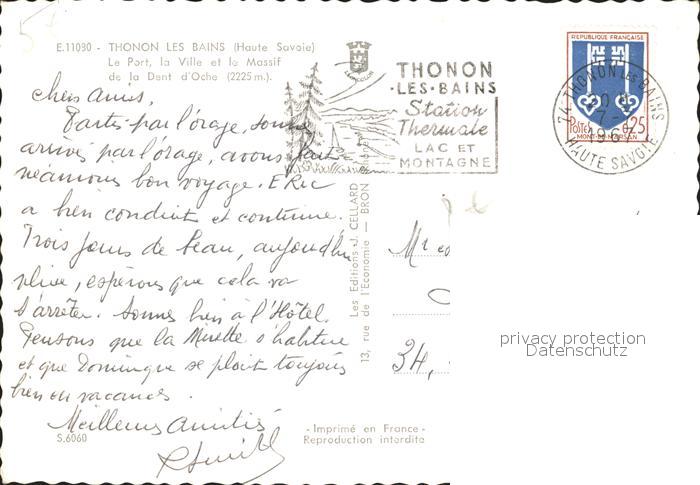 E.11030 - THONON LES BAINS (Haute Savoie)
Le Port, la Ville et le Massif
de la Dent d'Oche (2225 m.).
THONON
·LES·BAINS
Station
Thermale
LAC ET
MONTAGNE
REPUBLIQUE FRANÇAISE
POSTES 0,25
MONT-DE-MARSAN
74 THONON LES BAINS
HAUTE SAVOIE
chers amis,
Partis par l'orage, sommes
arrivés par l'orage, avons fait
néanmoins bon voyage. ERic
a bien conduit et continue.
Trois jours de beau, aujourd'hui
pluie, espérons que cela va
s'arrêter. Sommes bien à l'Hôtel.
Pensons que la Minette s'habitue
et que Dominique se plait toujours
bien en vacances.
Meilleures Amitiés
S.6060
Les Editions J. CELLARD
13, rue de l'Economie — BRON
Mr et
34,
- Imprimé en France -
Reproduction interdite
privacy protection
Datenschutz